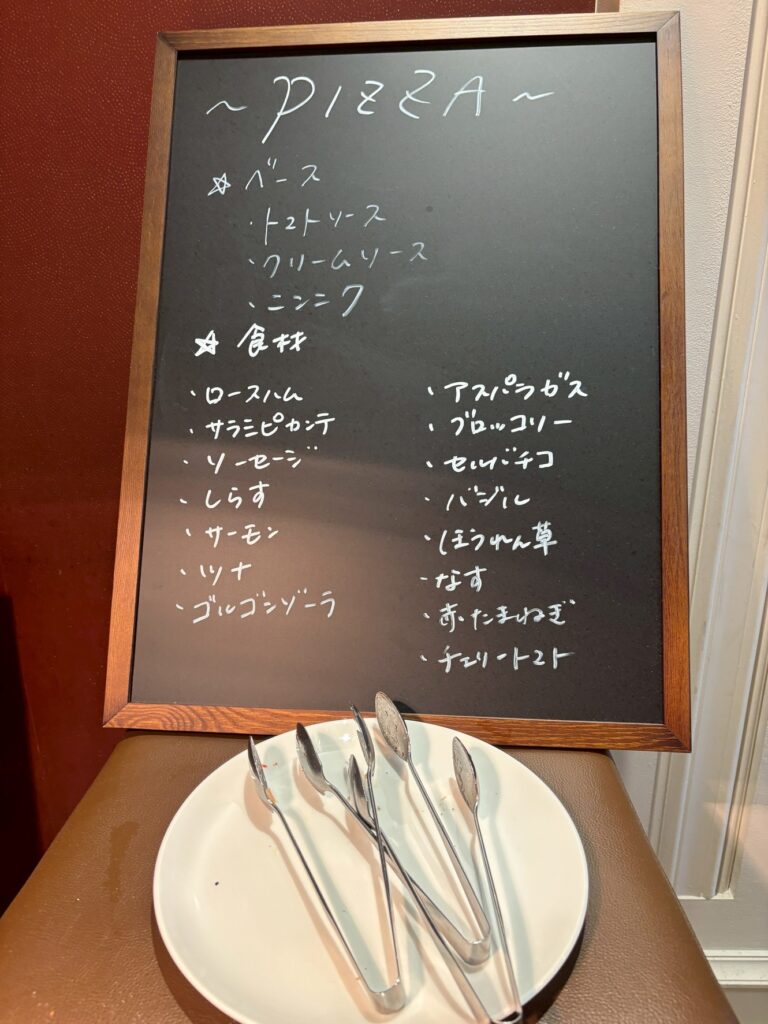 ~PIZZA~
☆ ベース
・トマトソース
・クリームソース
・ニンニク
☆ 食材
・ロースハム
・サラミピカンテ
・ソーセージ
・しらす
・サーモン
・ツナ
・ゴルゴンゾーラ
・アスパラガス
・ブロッコリー
・セルバチコ
・バジル
・ほうれん草
・なす
・赤たまねぎ
・チェリートマト